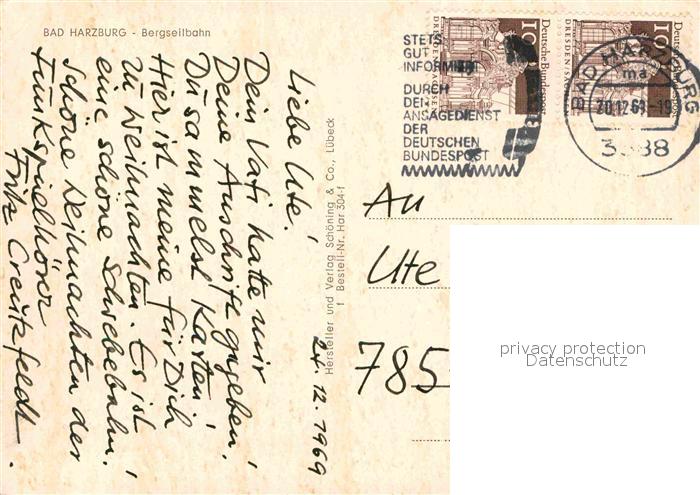 BAD HARZBURG - Bergseilbahn
24.12.1969
Liebe Ute!
Dein Vati hatte mir
Deine Anschrift gegeben.
Du sammelst Karten!
Hier ist meine für Dich
zu Weihnachten. Es ist
eine schöne Schwebebahn!
Schöne Weihnachten der
Funkspielhörer
Fritz Creutzfeldt.
Hersteller und Verlag Schöning & Co., Lübeck
f Bestell-Nr. Har 304-f
STETS
GUT
INFORMIERT
DURCH
DEN
ANSAGEDIENST
DER
DEUTSCHEN
BUNDESPOST
Deutsche Bundespost
10
DRESDEN/SACHSEN
Deutsche Bundespost
10
DRESDEN/SACHSEN
BAD HARZBURG
ma
20.12.69-19
3388
An
Ute
785
privacy protection
Datenschutz